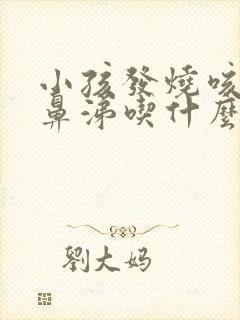 小孩發燒咳
鼻涕喫什麽
劉大妈